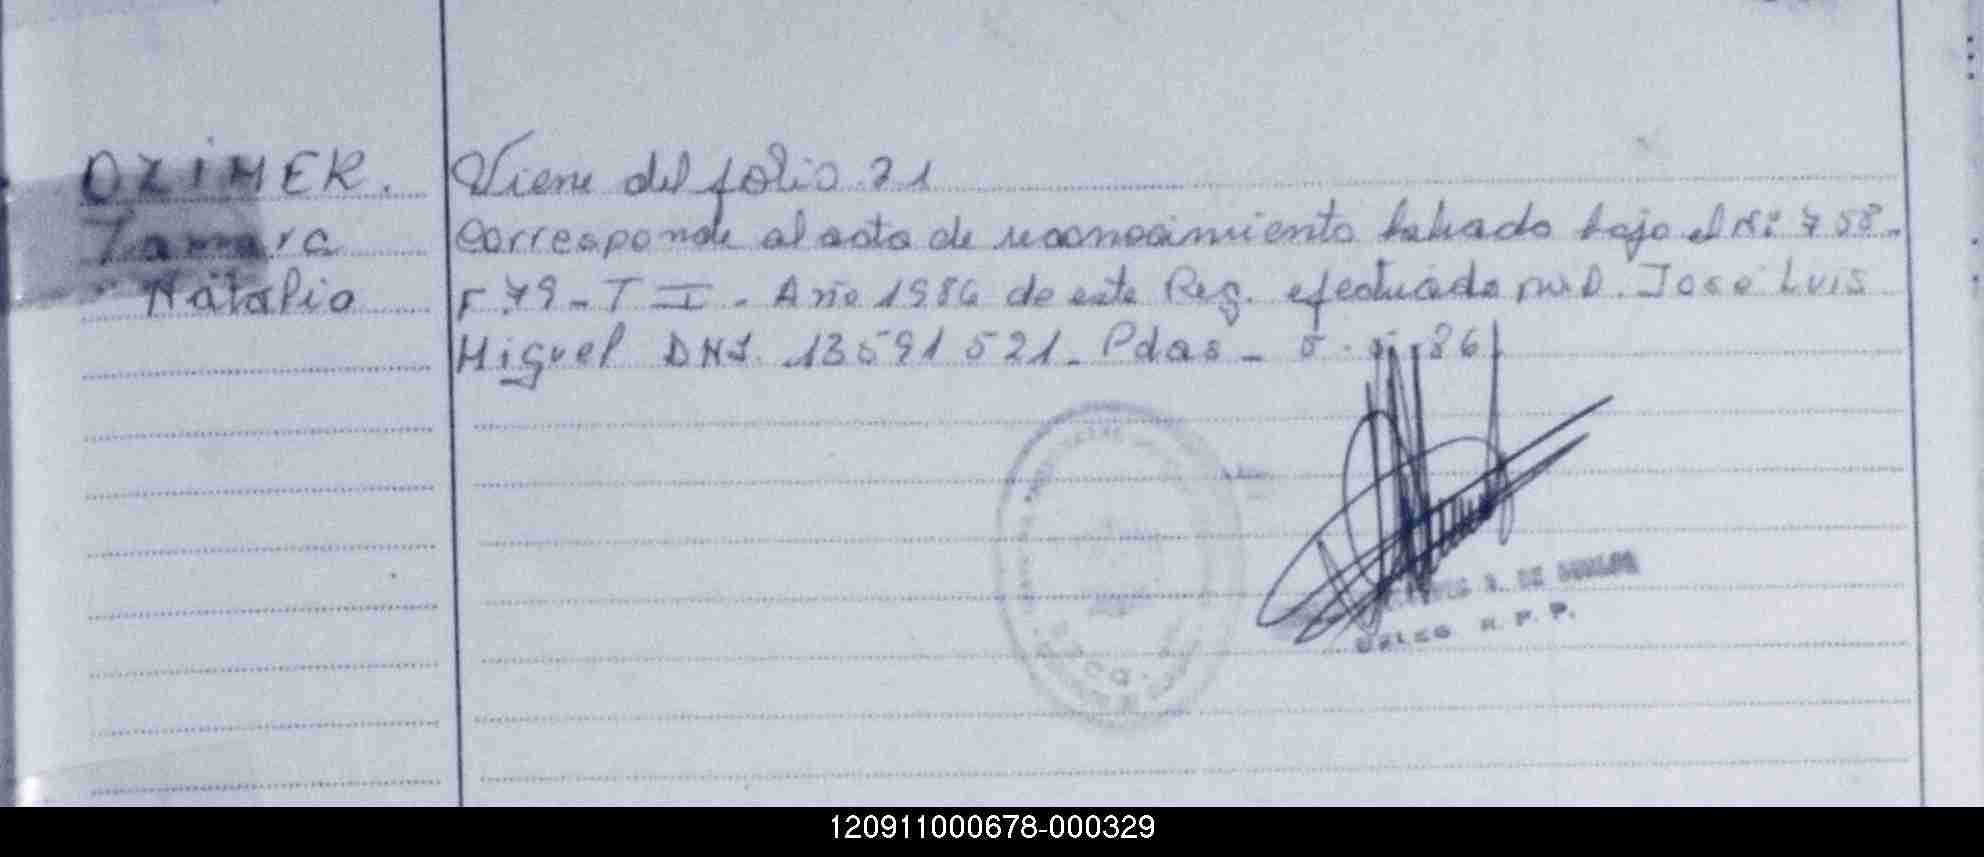 OZIMER.
Tamara
Natalia
Viene del folio 21
Corresponde al acta de reconocimiento labrado bajo el Nº 758-
F 79 - T II - Año 1986 de este Reg. efectuado por D. José Luis
Miguel DNI. 13591521 - Pdas - 86
DE
DELEG R. P. P.
120911000678-000329